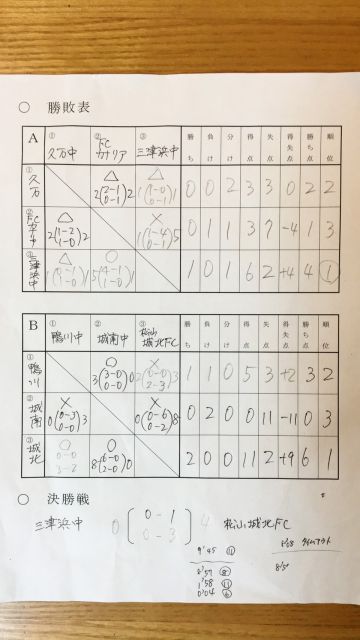 ○ 勝敗表
A ① 久万中 ② FC カナリア ③ 三津浜中 勝ち 負け 分け 得点 失点 得失点 勝ち点 順位
① 久万 △ 2(2-1 0-1)2 △ 1(1-0 0-1)1 0 0 2 3 3 0 2 2
② △ 2(1-2 1-0)2 × 1(1-4 0-1)5 0 1 1 3 7 -4 1 3
③ 三津浜中 △ 1(0-1 1-0)1 ○ 5(4-1 1-0)1 1 0 1 6 2 +4 4 ①
B ① 鴨川中 ② 城南中 ③ 城北FC 勝ち 負け 分け 得点 失点 得失点 勝ち点 順位
① 鴨川 ○ 3(3-0 0-0)0 × 2(0-0 2-3)3 1 1 0 5 3 +2 3 2
② 城南 × 0(0-3 0-0)3 × 0(0-6 0-2)8 0 2 0 0 11 -11 0 3
③ 城北 ○ 0-0 3-2 ○ 8(6-0 2-0)0 2 0 0 11 2 +9 6 1
○ 決勝戦
三津浜中 0 (0-1 0-3) 4 松山城北FC
9'45 ⑪
8'57 ⑧
1'58 ⑪
0'04 ⑥
タイムアウト